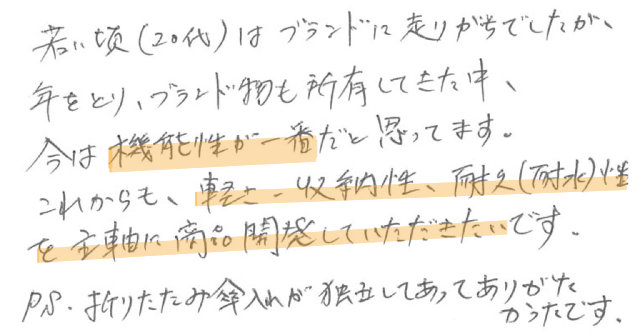 若い頃(20代)はブランドに走りがちでしたが、
年をとり、ブランド物も所有してきた中、
今は機能性が一番だと思ってます。
これからも、軽さ-収納性、耐久(耐水)性
を主軸に商品開発していただきたいです。
P.S. 折りたたみ傘入れが独立してあってありがた
かったです。